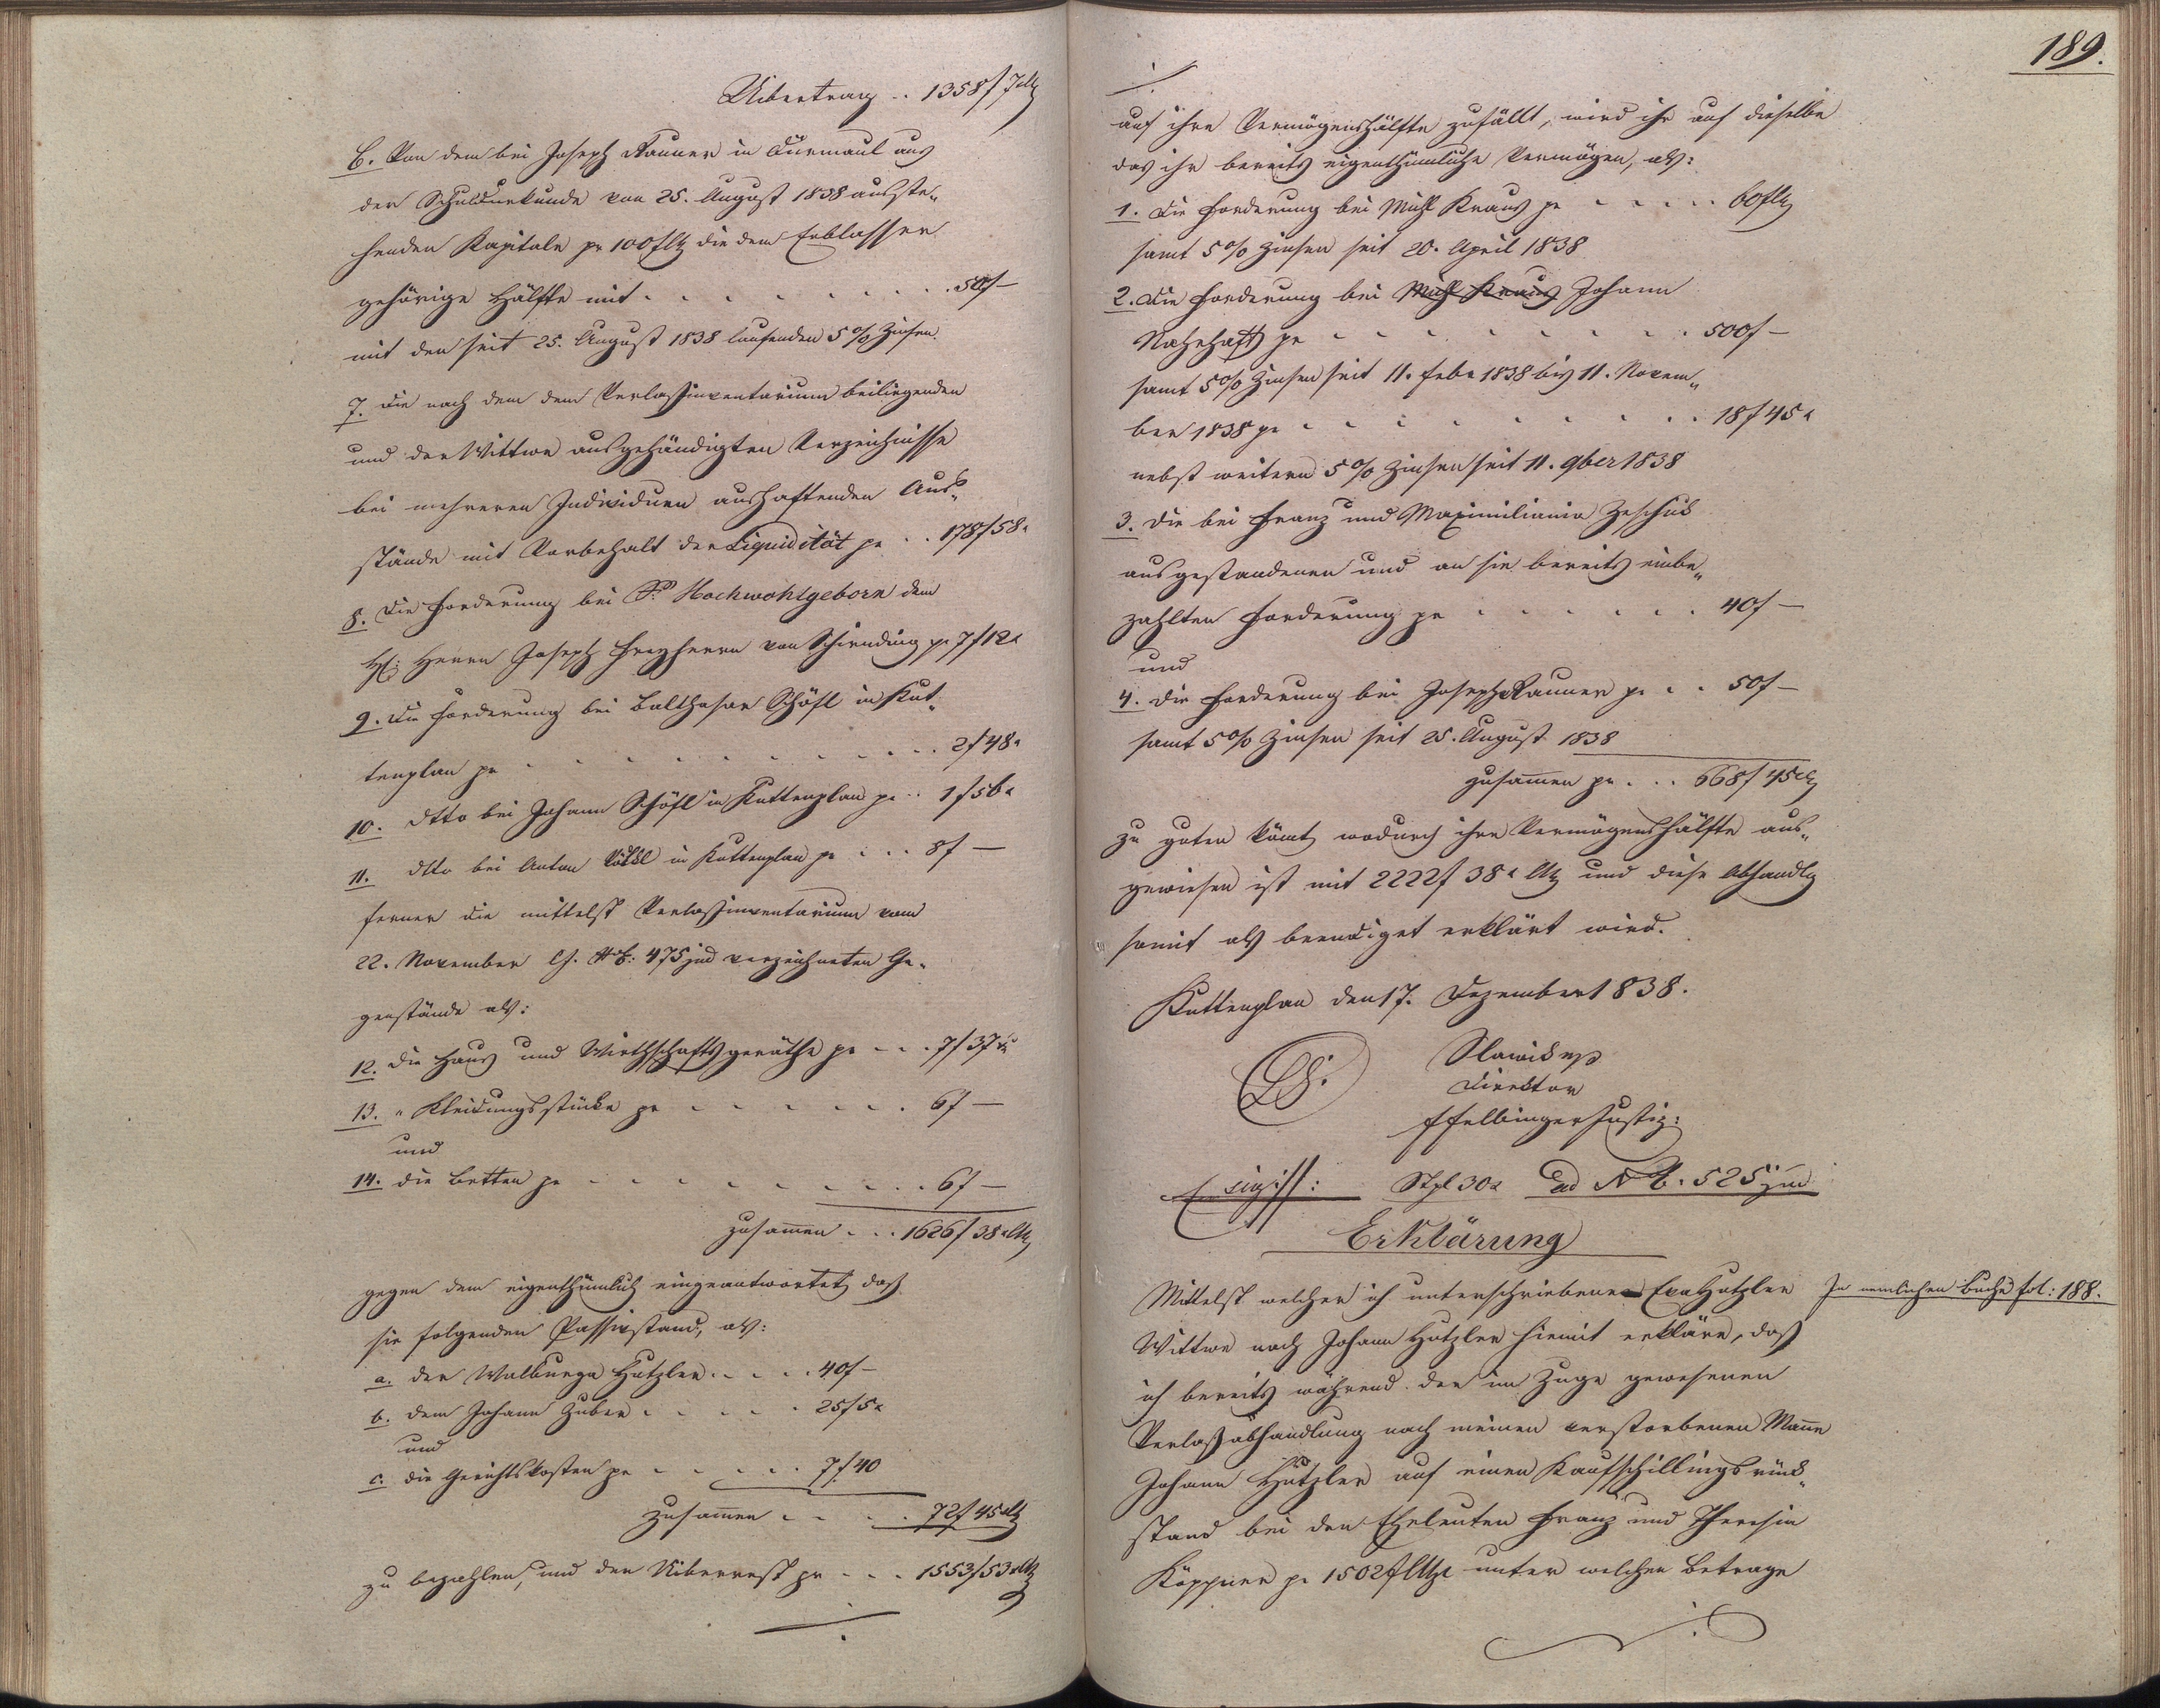 Uibertrag .. 1358 f 7 x CMz
6. Von dem bei Joseph Rauner in Dürmaul aus
der Schuldurkunde von 25. August 1838 ausste„
henden Kapitale pr 100 f CMz die dem Erblasser
gehörige Hälfte mit . . . . . . . . 50 f —
mit den seit 25. August 1838 laufenden 5 % Zinsen.
7. Die nach dem dem Verlassinventarium beiliegenden
und der Wittwe ausgehändigten Verzeichnisse
bei mehreren Individuen aushaftenden Aus„
stände mit Vorbehalt der Liquidität pr . . 178 f 58 x
8. Die Forderung bei Sr Hochwohlgeborn dem
H: Herrn Joseph Freyherrn von Schirnding pr 7 f 12 x
9. Die Forderung bei Balthasar Schöfl in Kut„
tenplan pr . . . . . . . . . . 2 f 48 x
10. dtto bei Johann Schöfl in Kuttenplan pr .. 1 f 56 x
11. dtto bei Anton in Kuttenplan pr . . . 8 f —
ferner die mittelst Verlassinventarium vom
22. November l. J. NE: 475 jud verzeichneten Ge„
genstände als:
12. die Haus und Wirthschaftsgeräthe pr . . . 7 f 37 x
13. „ Kleidungsstücke pr . . . . . . 6 f —
und
14. die Betten pr . . . . . . . . . 6 f —
zusammen . . . 1626 f 38 x CMz
gegen dem eigenthümlich eingeantwortet, daß
sie folgenden Passivstand, als:
a. der Walburga Hutzler . . . . 40 f —
b. dem Johann Zuber . . . . . 25 f 5 x
und
c. die Gerichtskosten pr . . . . . 7 f 40
Zusammen . . . . 72 f 45 x CMz
zu bezahlen, und der Uiberrest pr . . . 1553 f 53 x CMz
./.
189.
./.
auf ihre Vermögenshälfte zufällt, wird ihr auf dieselbe
das ihr bereits eigenthümliche Vermögen, als:
1. Die Forderung bei Michl Kraus pr . . . . . 60 f CMz
samt 5 % Zinsen seit 20. April 1838
2. Die Forderung bei Michl Kraus Johann
pr . . . . . . . . . 500 f —
samt 5 % Zinsen seit 11. Feber 1838 bis 11. Novem„
ber 1838 pr . . . . . . . . . 18 f 45 x
nebst weitern 5 % Zinsen seit 11. 9ber 1838
3. Die bei Franz und Maximiliania Zeschick
ausgestandenen und an sie bereits einbe„
zahlten Forderung pr . . . . . . 40 f —
und
4. die Forderung bei Joseph Rauner pr . . 50 f —
samt 5 % Zinsen seit 25. August 1838
zusammen pr . . . 668 f 45 x CMz
zu guten kömt, wodurch ihre Vermögenshälfte aus„
gewiesen ist mit 2222 f 38 x CMz und diese Abhandlg
somit als beendiget erklärt wird.
Kuttenplan den 17. Dezember 1838.
LS. Slawik mp
Direktor
Felbinger Justiz:
Stpl 30 x ad NE. 525 jud
Erklärung
Mittelst welcher ich unterschriebene Eva Hutzler
In nemlichen Buche fol: 188.
Wittwe nach Johann Hutzler hiemit erkläre, daß
ich bereits während der im Zuge gewesenen
Verlaßabhandlung nach meinen verstorbenen Mann
Johann Hutzler auf einen Kaufschillingsrück„
stand bei den Eheleuten Franz und Theresia
Köppner pr 1502 f CMze unter welchen Betrage
./.